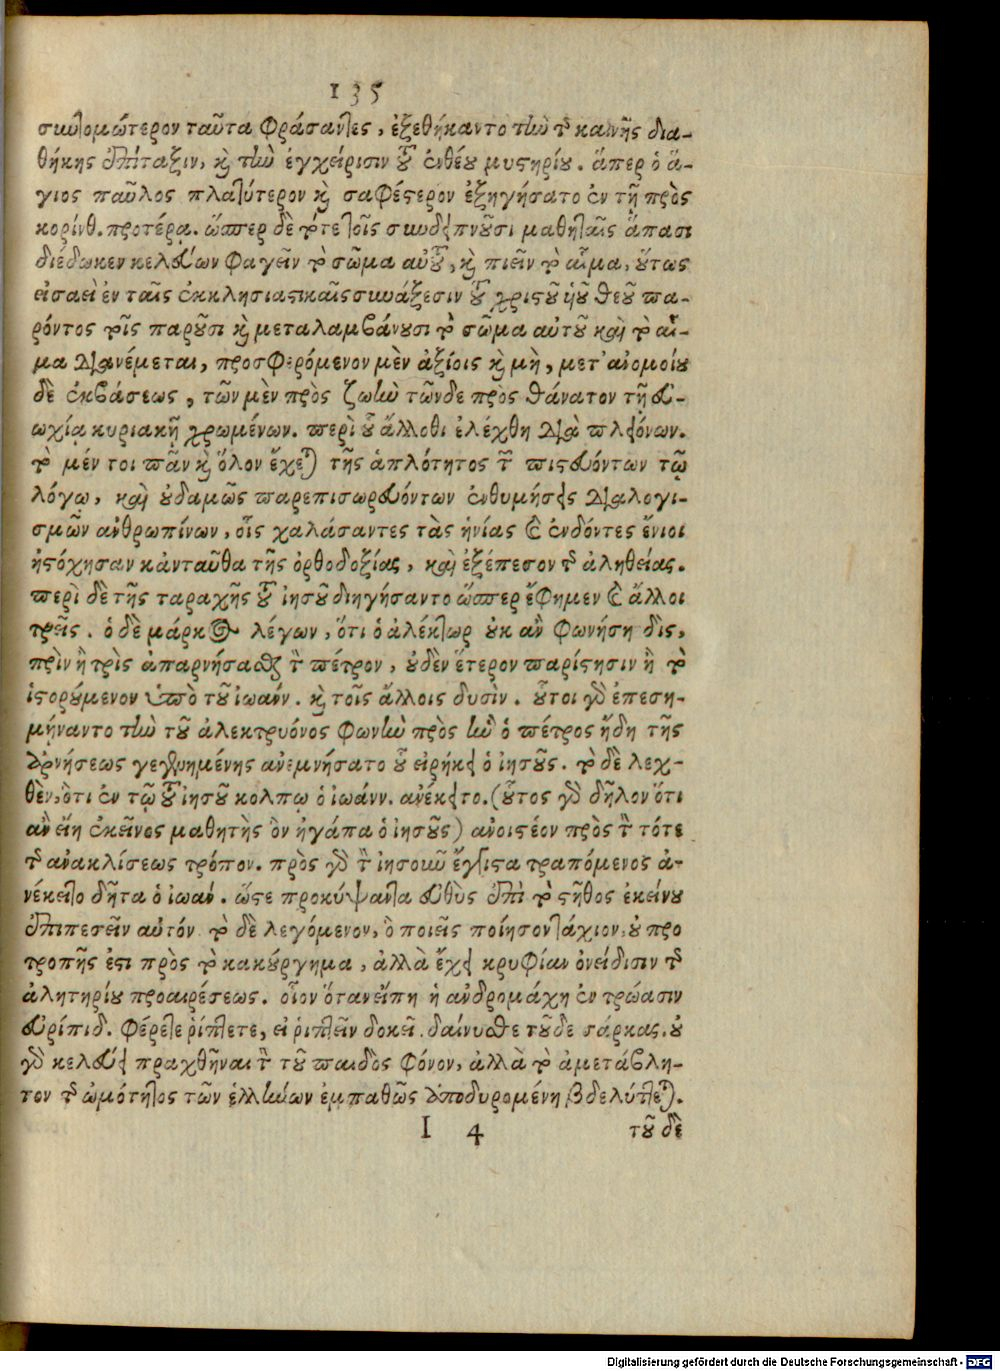 135
συντομώτερον ταῦτα φράσαντες, ἐξεθήκαντο τὴν τῆς καινῆς δια-
θήκης ἐπίταξιν, καὶ τὴν ἐγχείρισιν τοῦ ἐνθέου μυστηρίου. ἅπερ ὁ ἅ-
γιος παῦλος πλατύτερον καὶ σαφέστερον ἐξηγήσατο ἐν τῇ πρὸς
κορίνθ. προτέρᾳ. ὥσπερ δὲ τότε τοῖς συνδειπνοῦσι μαθηταῖς ἅπασι
διέδωκεν κελεύων φαγεῖν τὸ σῶμα αὐτοῦ, καὶ πιεῖν τὸ αἷμα, οὕτως
εἰσαεὶ ἐν ταῖς ἐκκλησιαστικαῖς συνάξεσιν τοῦ χριστοῦ υἱοῦ θεοῦ πα-
ρόντος τοῖς παροῦσι καὶ μεταλαμβάνουσι τὸ σῶμα αὐτοῦ καὶ τὸ αἷ-
μα διανέμεται, προσφερόμενον μὲν ἀξίοις καὶ μὴ, μετ' ἀνομοίου
δὲ ἐκβάσεως, τῶν μὲν πρὸς ζωὴν τῶνδε πρὸς θάνατον τῇ εὐ-
ωχίᾳ κυριακῇ χρωμένων. περὶ οὗ ἄλλοθι ἐλέχθη διὰ πλειόνων.
τὸ μέν τοι πᾶν καὶ ὅλον ἔχεται τῆς ἁπλότητος τῶν πιστευόντων τῷ
λόγῳ, καὶ οὐδαμῶς παρεπισωρευόντων ἐνθυμήσεις διαλογι-
σμῶν ἀνθρωπίνων, οἷς χαλάσαντες τὰς ἡνίας καὶ ἐνδόντες ἔνιοι
ἠστόχησαν κἀνταῦθα τῆς ὀρθοδοξίας, καὶ ἐξέπεσον τῆς ἀληθείας.
περὶ δὲ τῆς ταραχῆς τοῦ ἰησοῦ διηγήσαντο ὥσπερ ἔφημεν καὶ ἄλλοι
τρεῖς. ὁ δὲ μάρκος λέγων, ὅτι ὁ ἀλέκτωρ οὐκ ἂν φωνήσῃ δὶς,
πρὶν ἢ τρὶς ἀπαρνήσασθαι τὸν πέτρον, οὐδὲν ἕτερον παρίστησιν ἢ τὸ
ἱστορούμενον ὑπὸ τοῦ ἰωάνν. καὶ τοῖς ἄλλοις δυσὶν. οὗτοι γὰρ ἐπεση-
μήναντο τὴν τοῦ ἀλεκτρυόνος φωνὴν πρὸς ἣν ὁ πέτρος ἤδη τῆς
ἀρνήσεως γεγενημένης ἀνεμνήσατο οὗ εἰρήκει ὁ ἰησοῦς. τὸ δὲ λεχ-
θὲν, ὅτι ἐν τῷ τοῦ ἰησοῦ κολπῳ ὁ ἰωάνν. ἀνέκειτο. (οὗτος γὰρ δῆλον ὅτι
ἂν εἴη ἐκεῖνος μαθητὴς ὃν ἠγάπα ὁ ἰησοῦς) ἀνοιστέον πρὸς τὸν τότε
τῆς ἀνακλίσεως τρόπον. πρὸς γὰρ τὸν ἰησοῦν ἔγγιστα τραπόμενος ἀ-
νέκειτο δῆτα ὁ ἰωάν. ὥστε προκύψαντα εὐθὺς ἐπὶ τὸ στῆθος ἐκείνου
ἐπιπεσεῖν αὐτόν. τὸ δὲ λεγόμενον, ὃ ποιεῖς ποίησον τάχιον, οὐ προ
τροπῆς ἐστι πρὸς τὸ κακούργημα, ἀλλὰ ἔχει κρυφίαν ὀνείδισιν τῆς
ἀλητηρίου προαιρέσεως. οἷον ὅταν εἴπῃ ἡ ἀνδρομάχη ἐν τρῴασιν
εὐριπίδ. φέρετε ῥίπτετε, εἰ ῥιπτεῖν δοκεῖ. δαίνυσθε τοῦδε σάρκας. οὐ
γὰρ κελεύει πραχθῆναι τὸν τοῦ παιδὸς φόνον, ἀλλὰ τὸ ἀμετάβλη-
τον τῆς ὠμότητος τῶν ἑλλήνων ἐμπαθῶς ἀποδυρομένη βδελύττεται.
I 4 τοῦ δὲ
Digitalisierung gefördert durch die Deutsche Forschungsgemeinschaft - DFG